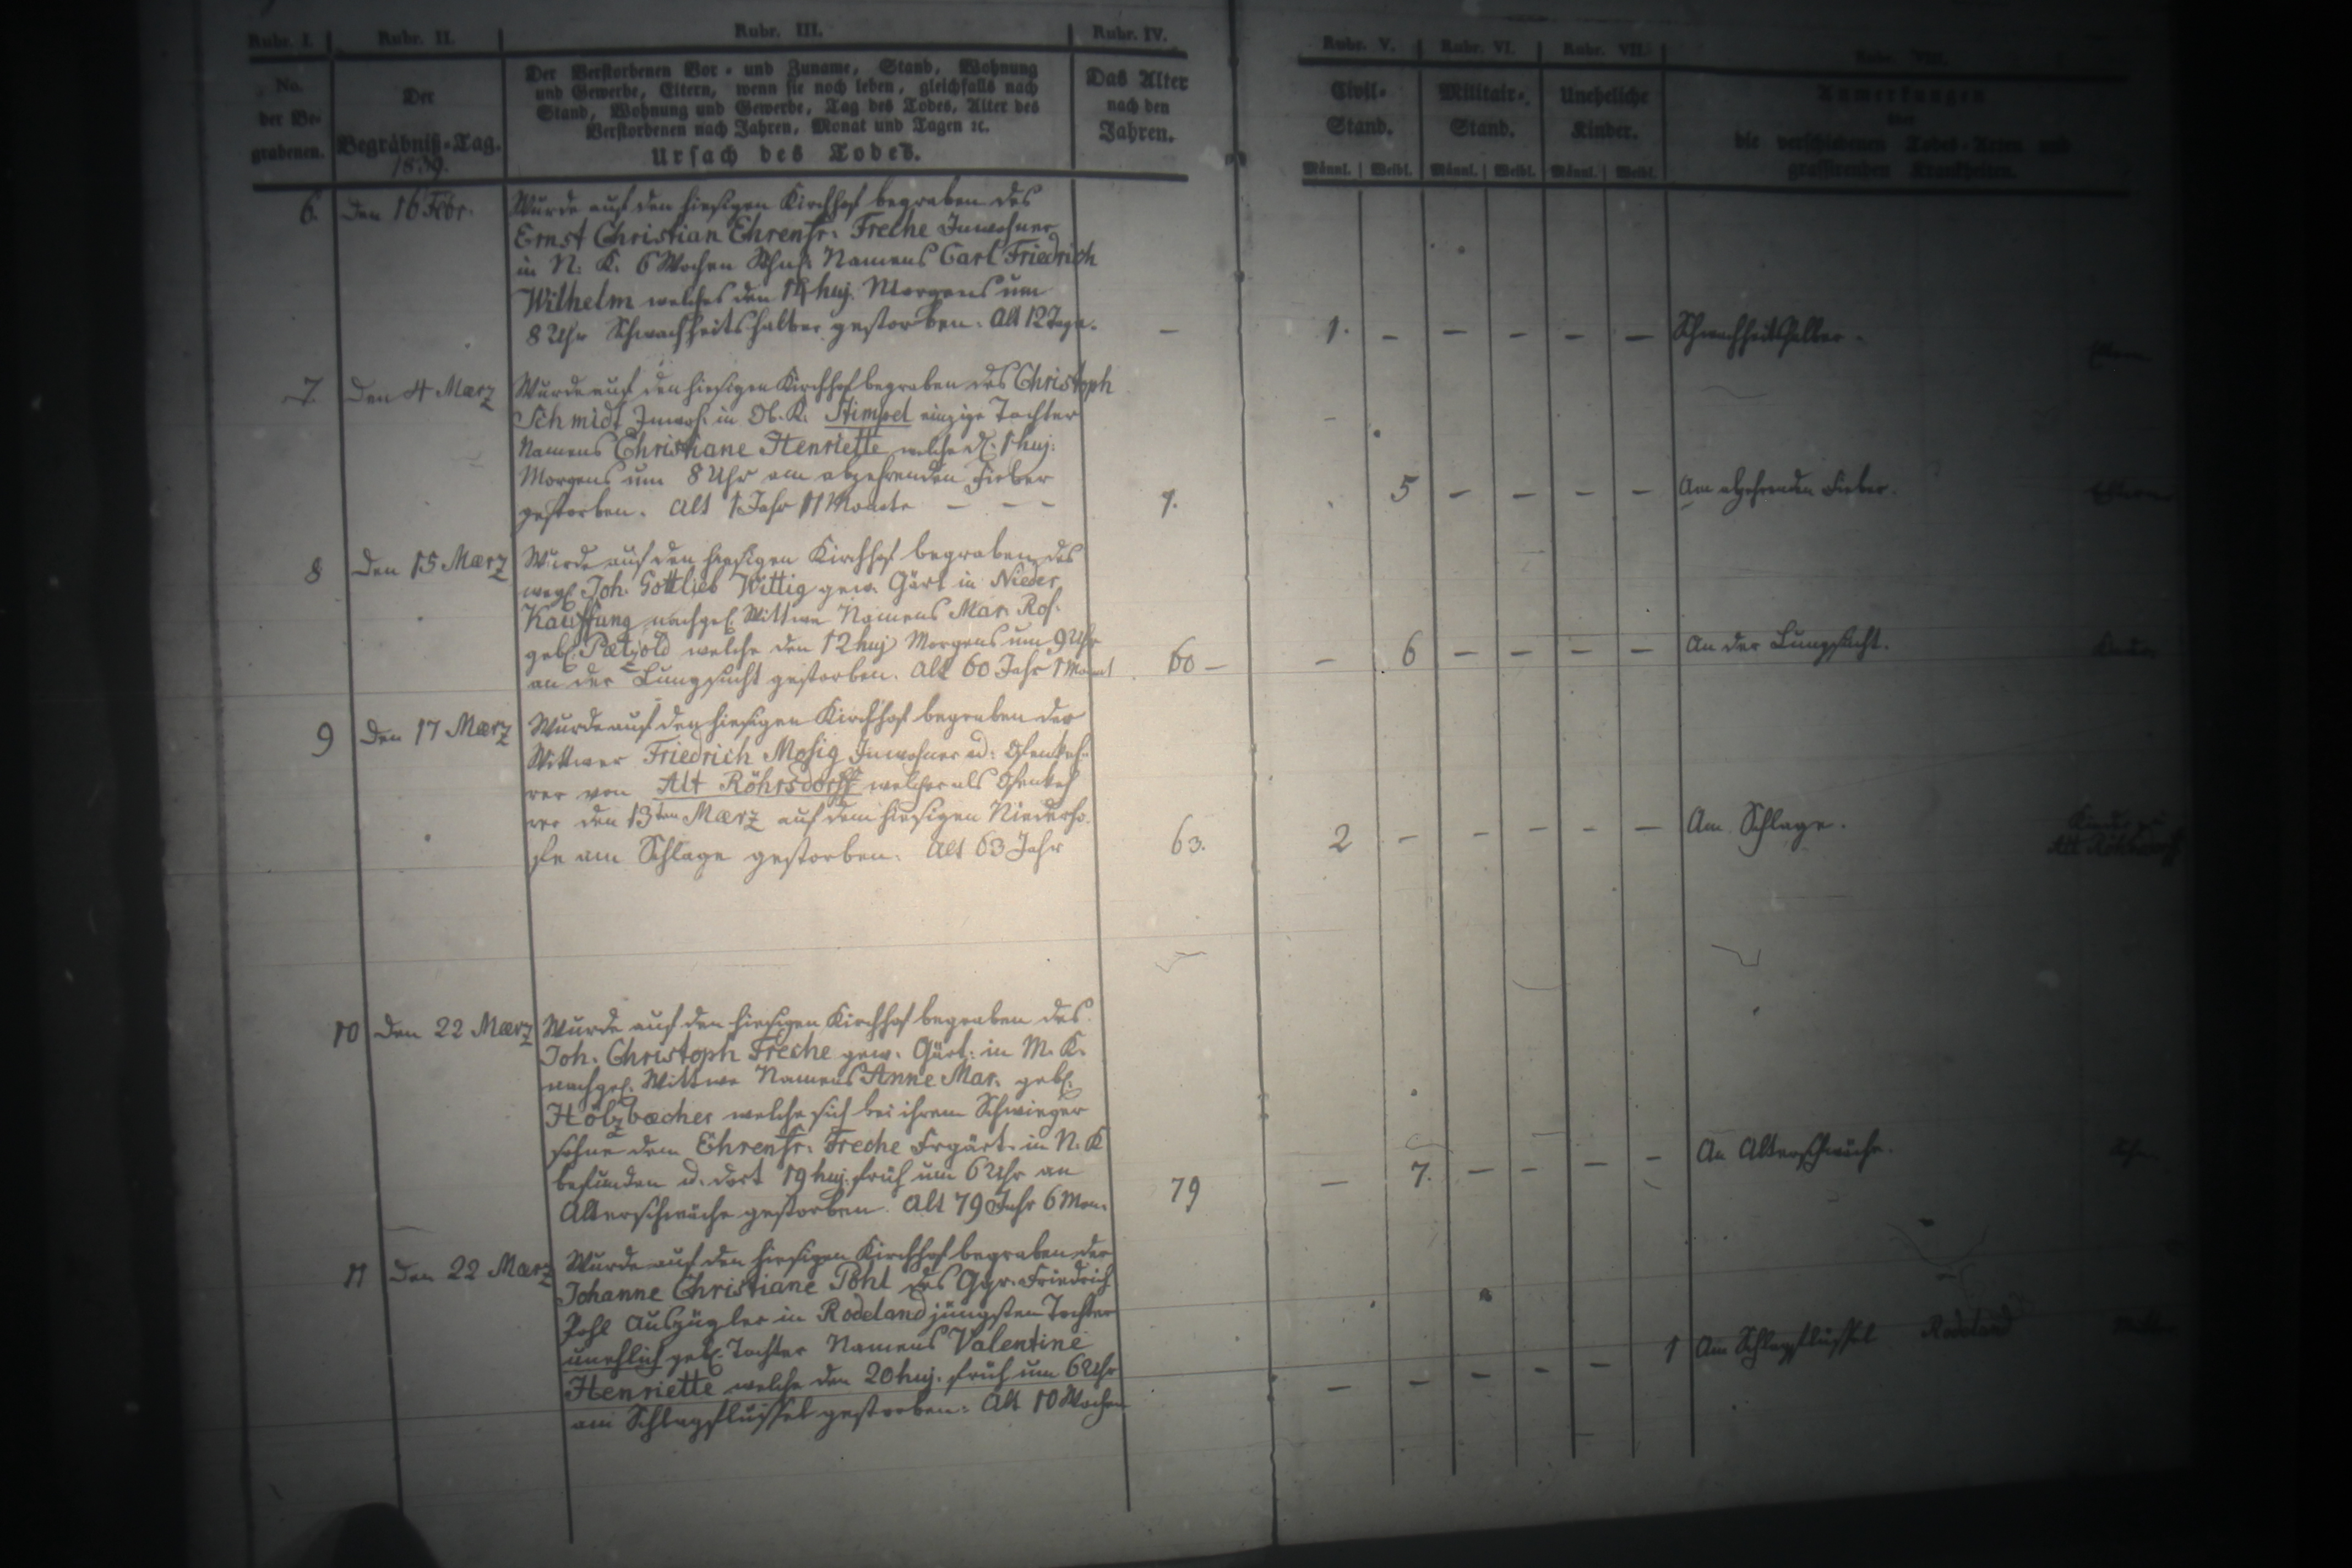 Rubr. I. Rubr. II. Rubr. III. Rubr. IV. Rubr. V. Rubr. VI. Rubr. VII. Rubr. VIII.
No.
der Be-
grabenen.
Der
Begräbniß-Tag.
1839.
Der Verstorbenen Vor- und Zuname, Stand, Wohnung
und Gewerbe, Eltern, wenn sie noch leben, gleichfalls nach
Stand, Wohnung und Gewerbe, Tag des Todes, Alter des
Verstorbenen nach Jahren, Monat und Tagen ꝛc.
Ursach des Todes.
Das Alter
nach den
Jahren.
Civil-
Stand.
Männl. Weibl.
Militair-
Stand.
Männl. Weibl.
Uneheliche
Kinder.
Männl. Weibl.
Anmerkungen
über
die verschiedenen Todes-Arten und
grassirenden Krankheiten.
6. den 16 Febr.
Wurde auf den hiesigen Kirchhof begraben des
Ernst Christian Ehrenfr: Freche Inwohner
in N: K. 6 Wochen Namens Carl Friedrich
Wilhelm welches den 14 huj. Morgens um
8 Uhr Schwachheitshalber gestorben. Alt 12 Tage.
– 1. – – – – – Schwachheitshalber.
7. den 4 Maerz
Wurde auf den hiesigen Kirchhof begraben des Christoph
Schmidt Inwoh. in Ob. K. Stimpel einzige Tochter
Namens Christiane Henriette welche d. 1 huj.
Morgens um 8 Uhr am abzehrenden Fieber
gestorben. Alt 1 Jahr 11 Monate – – –
1. 5 – – – – Am abzehrenden Fieber. Eltern
8 den 15 Maerz
Wurde auf den hiesigen Kirchhof begraben des
weyl. Joh. Gottlieb Wittig gew. Gärt. in Nieder
Kauffung nachgel. Wittwe Namens Mar. Ros.
geb. Paetzold welche den 12 huj Morgens um 9 Uhr
an der Lungsucht gestorben. Alt 60 Jahr 1 Monat
60 – – 6 – – – – An der Lungsucht.
9 den 17 Maerz
Wurde auf den hiesigen Kirchhof begraben der
Wittwer Friedrich Mosig Inwohner u:
rer von Alt Röhrsdorff welcher als
rer den 13ten Maerz auf dem hiesigen Niederho
fe am Schlage gestorben. Alt 63 Jahr
63. 2 – – – – – Am Schlage.
Alt Röhrsdorff
10 den 22 Maerz
Wurde auf den hiesigen Kirchhof begraben des
Joh. Christoph Freche gew. Gärt. in M. K.
nachgel. Wittwe Namens Anne Mar. geb.
Hölzbaecher welche sich bei ihrem Schwieger
sohne dem Ehrenfr. Freche Frgärt. in N. K
befunden u. dort 19 huj. früh um 6 Uhr an
Alterschwäche gestorben. Alt 79 Jahr 6 Mon.
79 – 7. – – – – An Alterschwäche.
11 den 22 Maerz
Wurde auf den hiesigen Kirchhof begraben der
Johanne Christiane Pohl des Ggr. Friedrich
Pohl Auszügler in Rodeland jüngsten Tochter
unehlich geb. Tochter Namens Valentine
Henriette welche den 20 huj. früh um 6 Uhr
am Schlagflüssel gestorben. Alt 10 Wochen
– – – – – 1 Am Schlagflüssel Rodeland